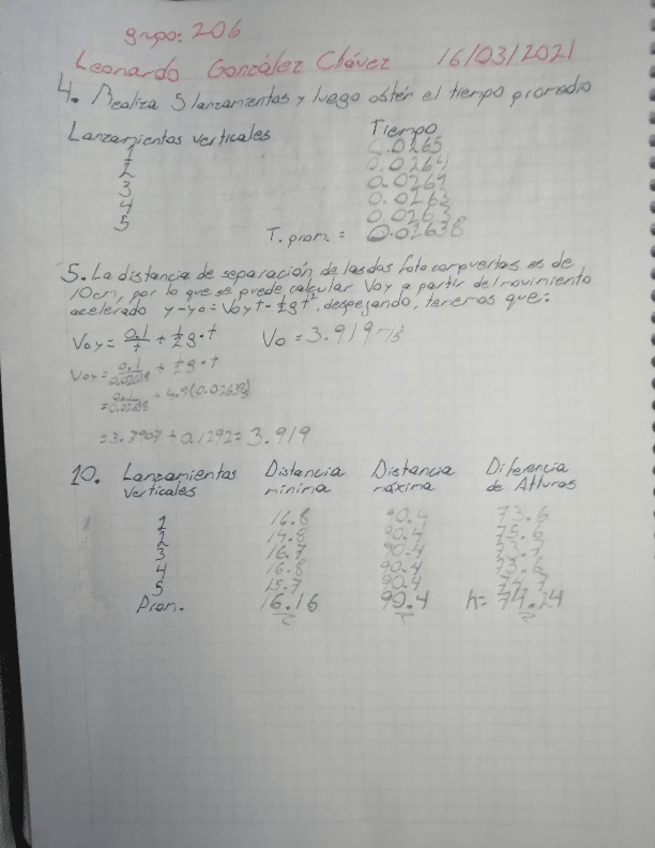 grupo: 206
Leonardo González Chávez 16/03/2021
4. Realiza 5 lanzamientos y luego obtén el tiempo promedio
Lanzamientos verticales Tiempo
1 0.0265
2 0.0264
3 0.0264
4 0.0263
5 0.0263
T. prom. = 0.02638
5. La distancia de separación de las dos fotocompuertas es de
10cm, por lo que se puede calcular Voy a partir del movimiento
acelerado y-yo = Voyt - ½gt², despejando, tenemos que:
Voy = 0.1/t + ½g·t Vo = 3.919 m/s
Voy = 0.1/0.02638 + ½g·t
= 0.1/0.02638 + 4.9(0.02638)
= 3.7907 + 0.1292 = 3.919
10. Lanzamientos Distancia Distancia Diferencia
verticales mínima máxima de Alturas
1 16.8 90.4 73.6
2 14.8 90.4 75.6
3 16.7 90.4 73.7
4 16.8 90.4 73.6
5 15.7 90.4 74.7
Prom. 16.16 90.4 h= 74.24